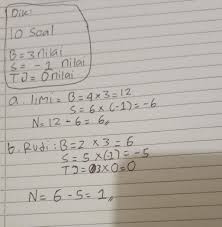 Dik:
10 Soal
B = 3 nilai
S = -1 nilai
TJ = 0 nilai
a. limi = B = 4 x 3 = 12
S = 6 x (-1) = -6
N = 12 - 6 = 6
b. Rudi : B = 2 x 3 = 6
S = 5 x (-1) = -5
TJ = 3 x 0 = 0
N = 6 - 5 = 1